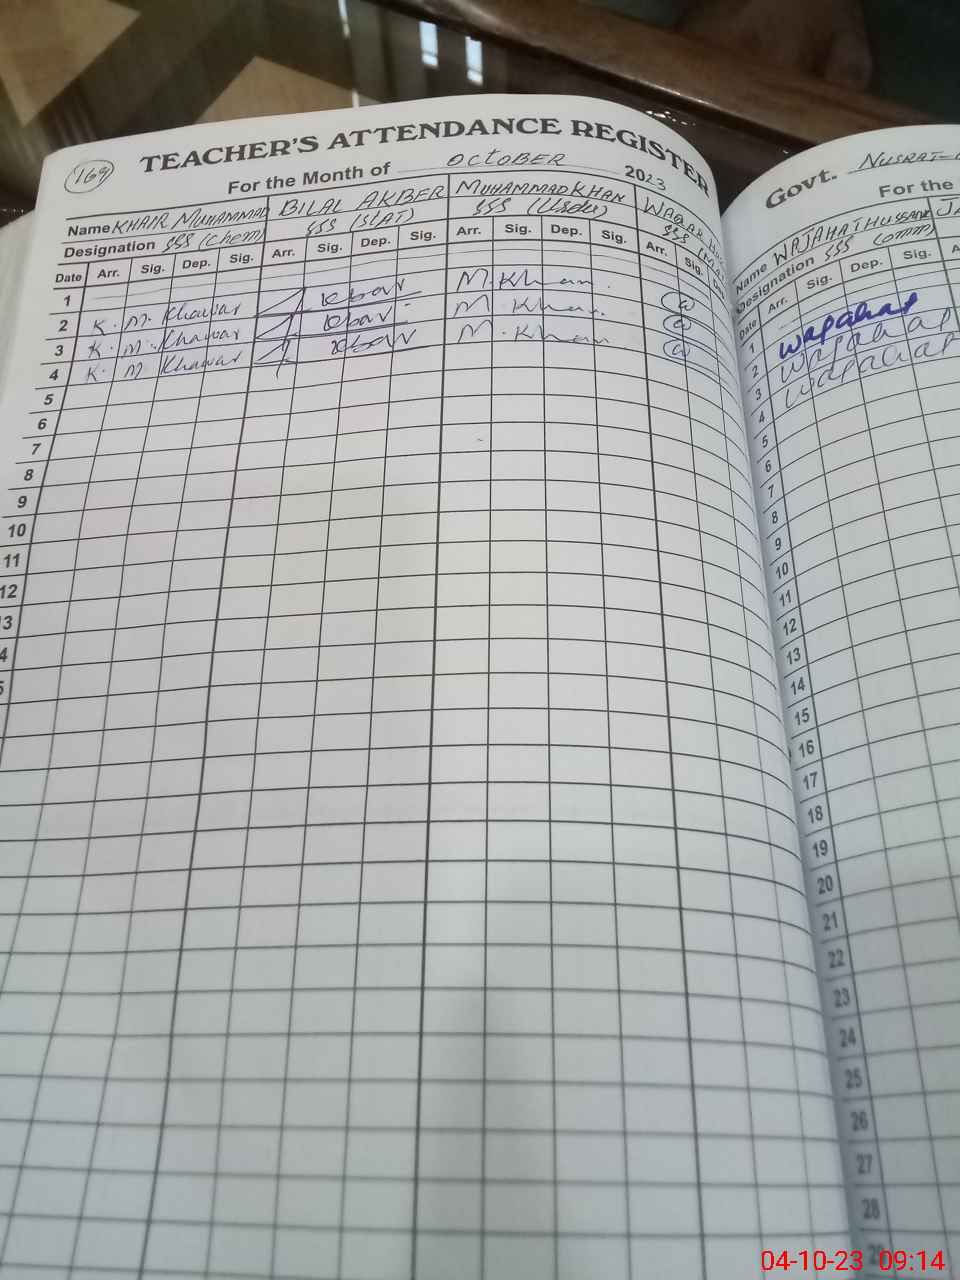 169
TEACHER'S ATTENDANCE REGISTER
For the Month of OCTOBER 2023
Name KHAIR MUHAMMAD BILAL AKBER MUHAMMAD KHAN WAQAR
Designation SSS (Chem) SSS (ISLAT) SSS (Urdu) SSS
Date Arr. Sig. Dep. Sig. Arr. Sig. Dep. Sig. Arr. Sig. Dep. Sig. Arr. Sig.
1
2 K. M. Khawar M. Khan
3 K. M. Khawar M. Khan
4 K. M Khawar M. Khan
5
6
7
8
9
10
11
12
3
4
5
Govt. NUSRAT
For the
Name WAJAHAT HUSSAIN
Designation SSS (Comm)
Date Arr. Sig. Dep. Sig. A
1
2 Wajahat
3 Wajahat
4 Wajahat
5
6
7
8
9
10
11
12
13
14
15
16
17
18
19
20
21
22
23
24
25
26
27
28
29
04-10-23 09:14